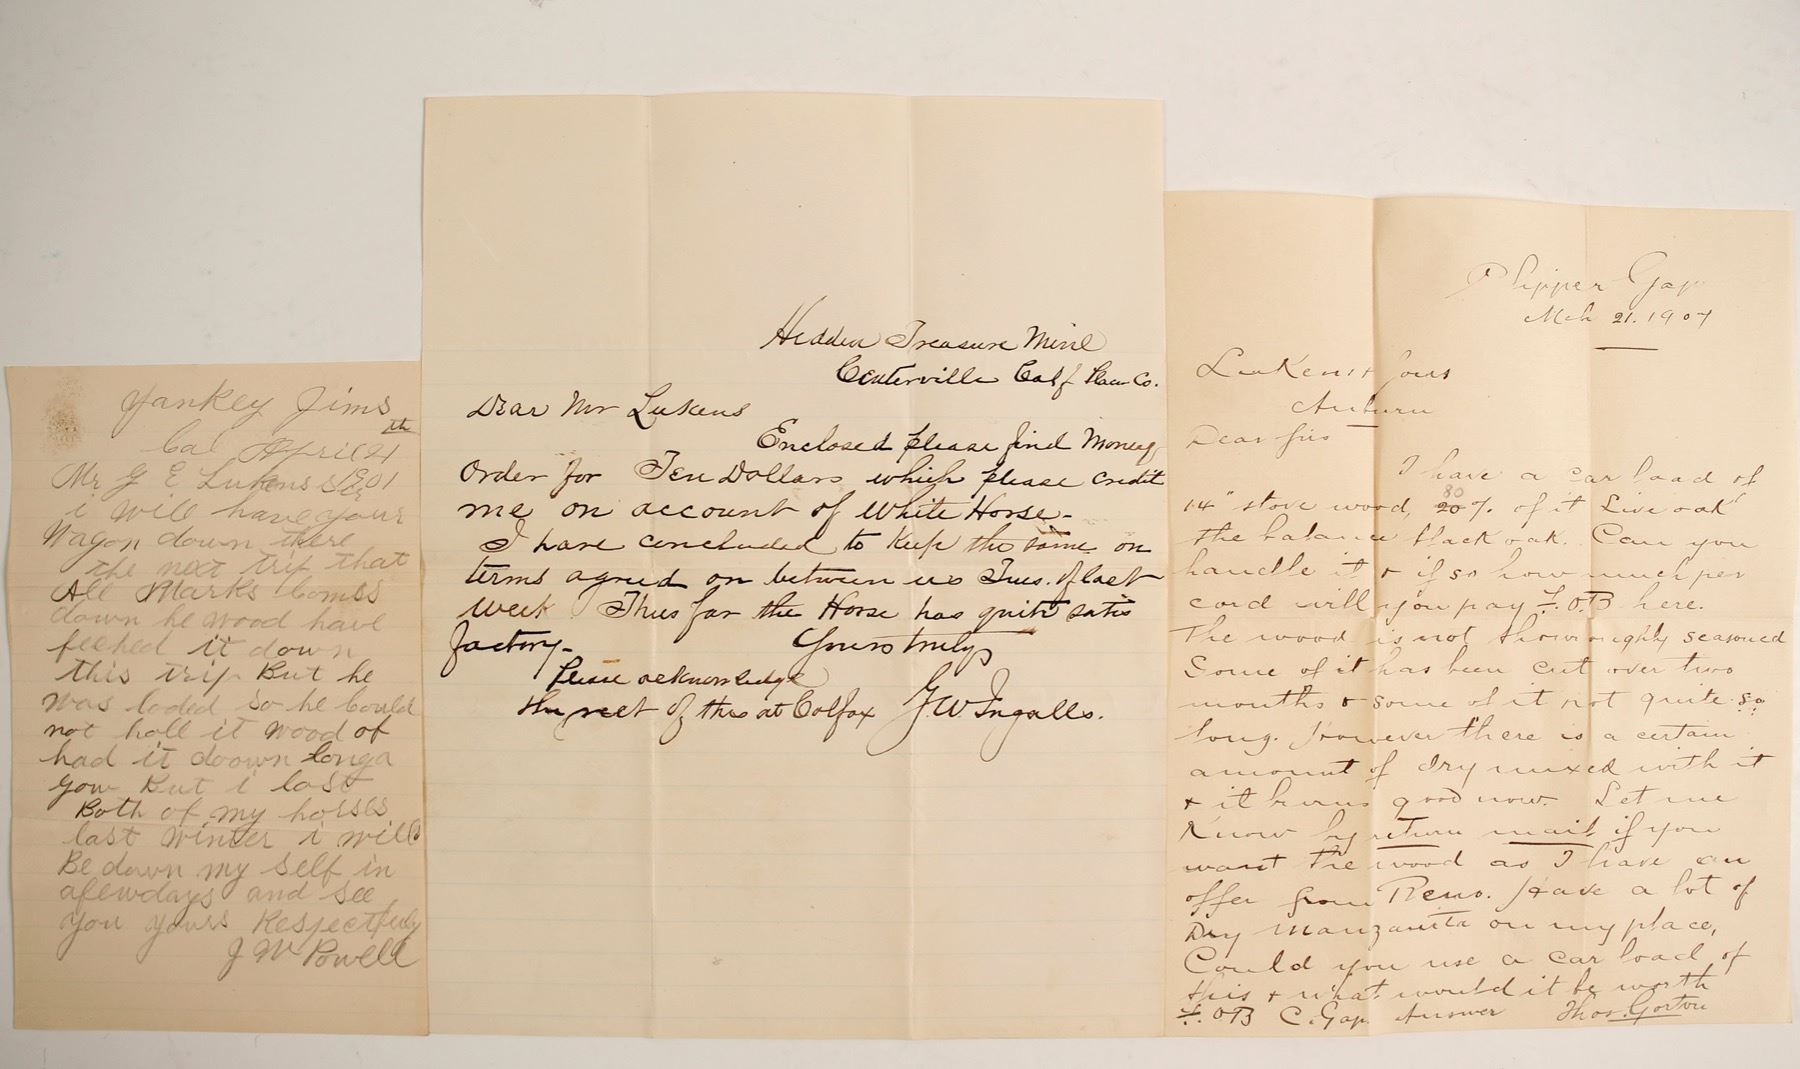 Yankey Jims
Cal April 4th
Mr G E Lukens Sir 1901
i will have your
Wagon down there
the next trip that
All Marks Comes
down he wood have
feched it down
this trip But he
was loded so he Could
not holl it wood of
had it doown longa
gow But i lost
Both of my horses
last winter i will
Be down my self in
afewdays and see
you yours Respectfuly
J W Powell
Hidden Treasure Mine
Centerville Calf Placer Co.
Dear Mr Lukens
Enclosed please find Money
Order for Ten Dollars which please credit
me on account of White Horse-
I have concluded to Keep the same on
terms agreed on between us Tues. of last
week Thus far the Horse has quite satis
factory-
Yours truly
Please acknowledge
the rect of this at Colfax G.W. Ingalls.
Clipper Gap
Mch 21. 1907
Lukens & Sons
Auburn
Dear Sirs
I have a car load of
14" stove wood, 80 % of it Live oak
the balance black oak. Can you
handle it & if so how much per
cord will you pay F.O.B here.
The wood is not thouroughly seasoned
Some of it has been cut over two
months & some of it not quite so
long. However there is a certain
amount of dry mixed with it
& it burns good now. Let me
Know by return mail if you
want the wood as I have an
offer from Reno. Have a lot of
Dry Manzanita on my place,
Could you use a car load of
this & what would it be worth
F.OB C. Gap Answer Thos. Gorton